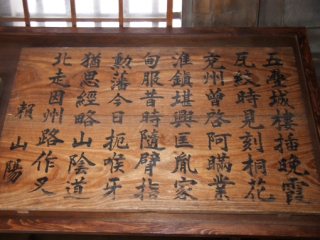 五畳城樓挿晩霞
瓦紋時見刻桐花
兗州曽啓阿瞞業
淮鎮堪興匡胤家
甸服昔時隨臂指
勲藩今日扼喉牙
猶思經略山陰道
北走因州路作叉
頼山陽